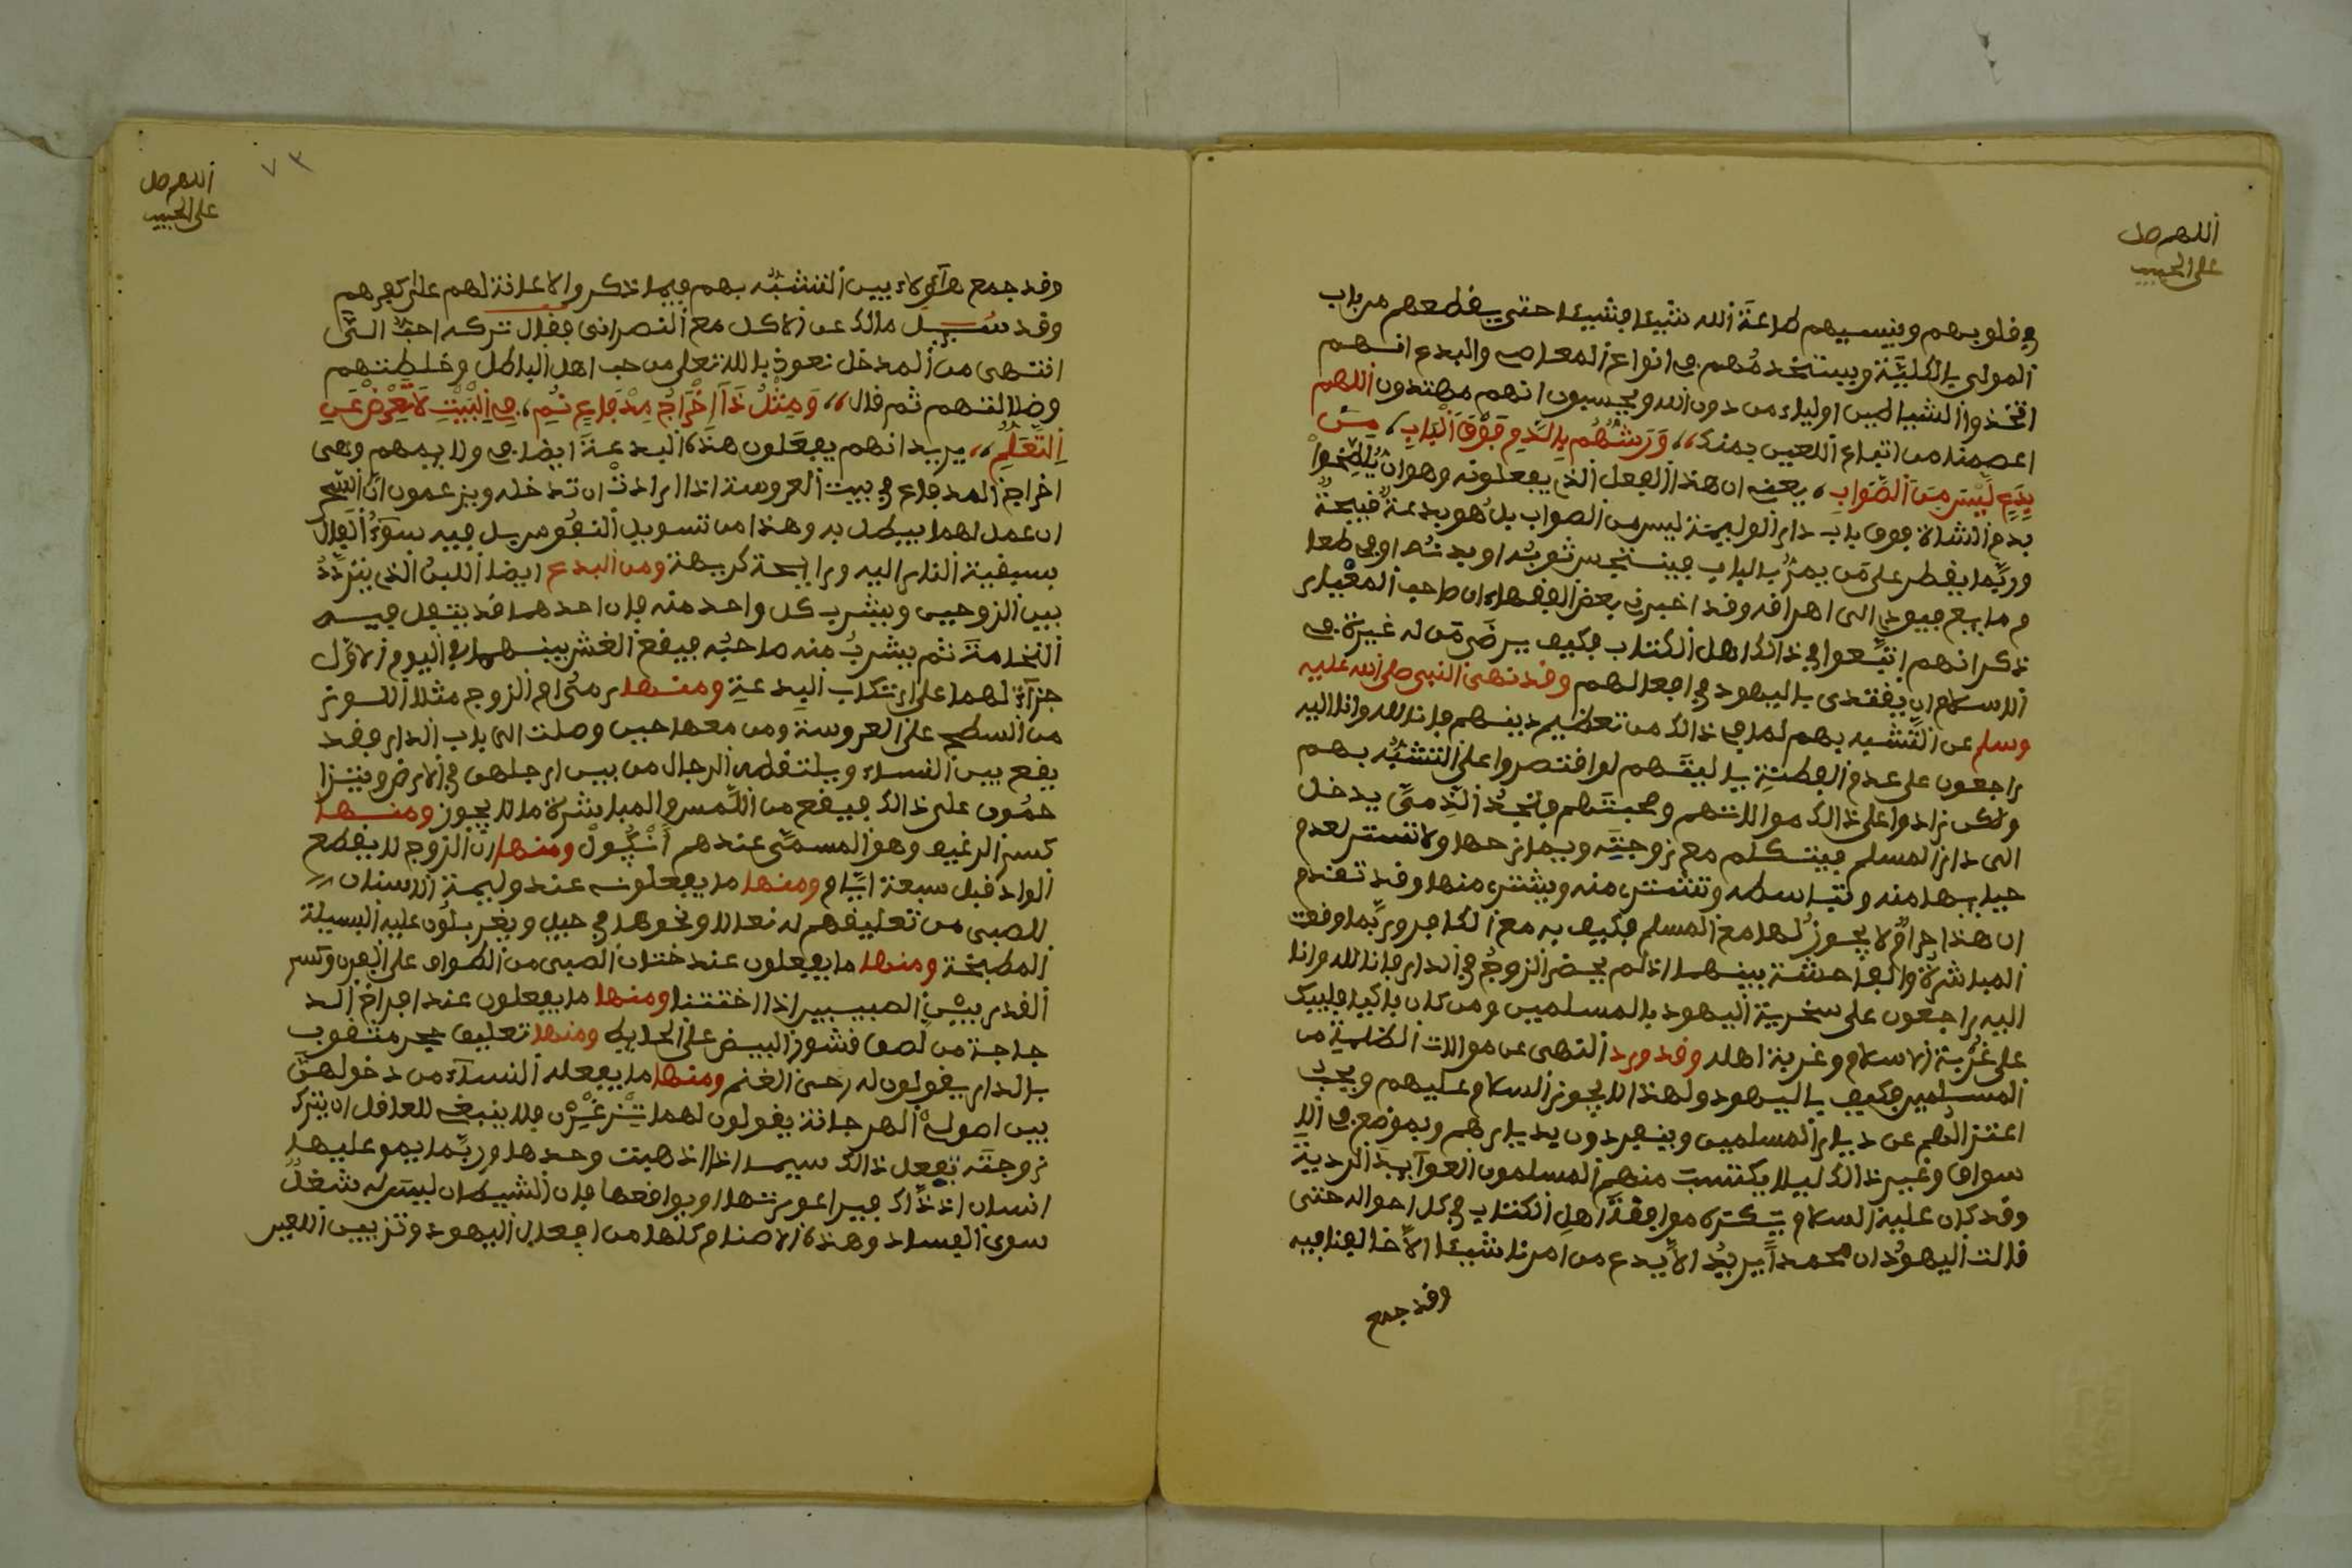 اللهم صل
على الحبيب
في قلوبهم وينسيهم طاعة الله شيئا فشيئا حتى يقطعهم من باب
المولى بالكليّة ويستخدمُهم في انواع المعاصي والبدع انهم
اتخذوا الشياطين اولياء من دون الله ويحسبون انهم مهتدون اللهم
اعصمنا من اتباع اللعين بمنك ،، وَرَشُّهُم بِالدَّمِ فَوْقَ الْبَابِ ، مِنْ
بِدَعٍ لَيْسَ مِنَ الصَّوَابِ ، يعني ان هذا الفعل الذي يفعلونه وهو ان يُلَطِّخوا
بدم الشاة فوق باب دار الوليمة ليس من الصواب بل هو بدعةٌ قبيحةٌ
وربّما يقطر على مَن يمرُّ بالباب فيتنجس ثوبُه او بدنُه او في طعا
م ما يبع فيودي الى اهراقه وقد اخبرني بعض الفقهاء ان صاحب المعْيار
ذكر انهم اتبَّعوا في ذالك اهل الكتاب فكيف يرضَى مَن له غيرة في
الاسلام ان يقتدي باليهود في افعالهم وقد نهى النبي صلى الله عليه
وسلم عن التَّشبه بهم لما في ذالك من تعظيم دينهم فانا لله وانا اليه
راجعون على عدم الفطنةِ ياليتَهم لو اقتصروا على التشبُّه بهم
ولكن زادوا على ذالك موالاتهم ومحبتَهم فتجدُ الذِّمىَّ يدخل
الى دار المسلم فيتكلم مع زوجتِه ويمازحها ولا تستتر لعدم
حيائها منه وتباسطه وتشتري منه ويشتري منها وقد تقدم
ان هذا حرامٌ لا يجوز لها مع المسلم فكيف به مع الكافر وربَّما وقعت
المباشرةُ والفاحشة بينهما اذ لم يحضر الزوجُ في الدار فانا لله وانا
اليه راجعون على سخرية اليهود بالمسلمين ومن كان باكيا فليبك
على غُرْبة الاسلام وغربة اهله وقد ورد النهي عن موالات الظلمة من
المسلمين فكيف باليهود ولهذا لا يجوز السلام عليهم ويجب
اعتزالُهم عن ديار المسلمين وينفردون بديارهم وبموضع في الا
سواق وغير ذالك ليلا يكتسبَ منهم المسلمون العوآئِدَ الردية
وقد كان عليه السلام يَكره موافقةَ اهل الكتاب في كل احواله حتى
قالت اليهودُ ان محمداً يريدُ الاَّ يدع من امرنا شيئا الاَّ خالفنا فيه
وقد جمع
اللهم صل
على الحبيب
٧٣
وقد جمع هآؤلاء بين التشبُّه بهم فيما ذكر والاعانة لهم على كفرهم
وقد سُيِل مالك عن الاكل مع النصراني فقال تركه احبُّ الىَّ
انتهى من المدخل نعوذ بالله تعلى من حب اهل الباطل وخلطتهم
وضلالتهم ثم قال ،، وَمِثْلُ ذَا اِخْرَاجُ مِدْفَاعٍ نُمِ ، فِي الْبَيْتِ لاَ تُعْرِضْ عَنِ
اِلتَّعَلُّمِ ،، يريد انهم يفعَلون هذه البدعةَ ايضا في ولائمهم وهي
اخراج المدفاع في بيت العروسة اذا ارادتْ ان تدخله ويزعمون انَّ السِّحر
ان عمل لهما يبطل به وهذا من تسويل النفوس بل فيه سوءُ الفال
بسبقية النار اليه ورائحة كريهة ومن البدع ايضا اللبنُ الذي يتردَّدُ
بين الزوجين ويشرب كل واحد منه فان احدهما قد يتفل فيه
النخامة ثم يشربُ منه صاحبُه فيقع الغش بينهما في اليوم الاوّل
جزآءً لهما على ارتكاب البِدعةِ ومنها رمىُ ام الزوج مثلا اللوز
من السطح على العروسة ومن معها حين وصلت الى باب الدار فقد
يقع بين النساء ويلتقطه الرجال من بين ارجلهن في الارض ويتزا
حمُون على ذالك فيقع من اللَّمس والمباشرة ما لا يجوز ومنها
كسر الرغيف وهو المسمَّى عندهم اَنْبُّولْ ومنها ان الزوج لا يقطع
الواد قبل سبعة ايّام ومنها ما يفعلونه عند وليمة الاسنان
للصبي من تعليقهم له نعالا ونحوها في حبل ويغربلُون عليه البسيلة
المطبخة ومنها ما يفعلون عند ختان الصبي من الطواف على الفرن وكسر
القدر بيْنَ الصبيين اذا اختتنا ومنها ما يفعلون عند افراخ الد
جاجة من لصق قشور البيض على الحايط ومنها تعليق حجر مثقوب
بالدار يقولون له رحى الغنم ومنها ما يفعله النسآء من دخولهنَّ
بين اصولِ الهرجانة يقولون لهما تِنْرغِيْرْن فلا ينبغي للعاقل ان يترك
زوجتَه تفعل ذالك سيما اذا ذهبت وحدها وربَّما يمر عليها
انسان اذذَّاك فيرا عورتها او يواقعها فان الشيطان ليس له شغلٌ
سوى الفساد وهذه الاصنام كلها من افعال اليهود وتزيين اللعين